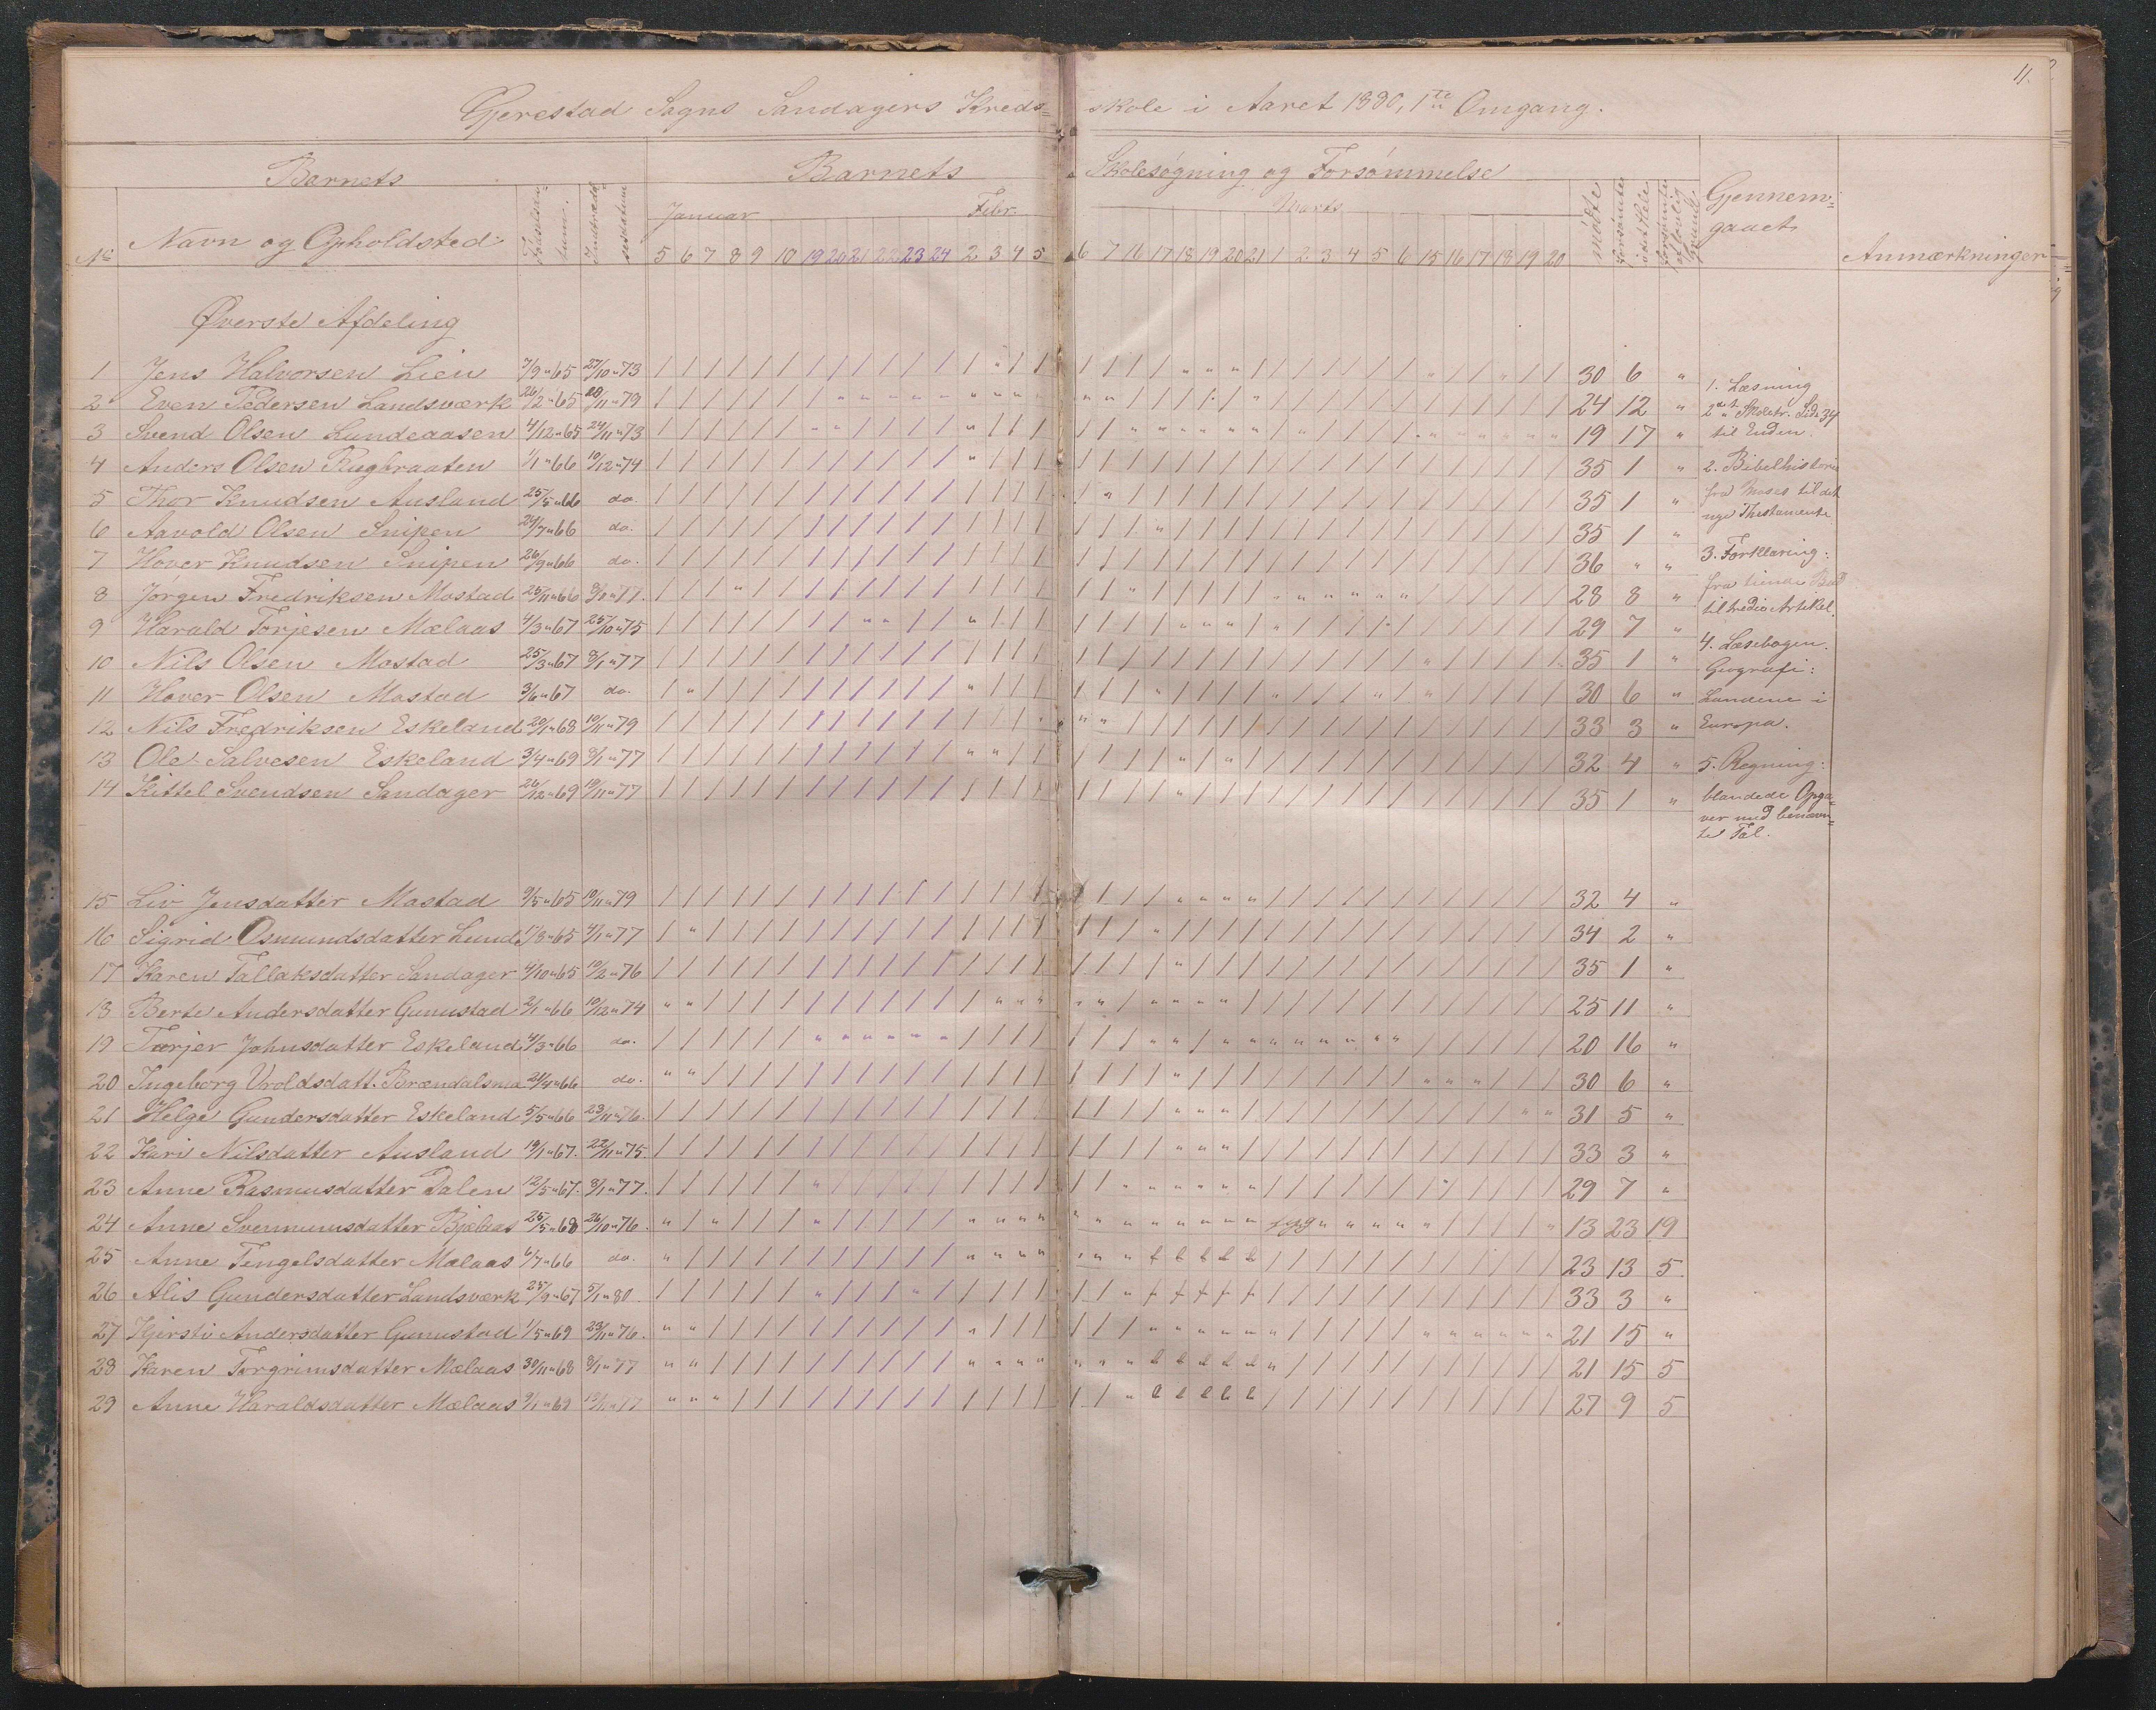 11.
Gjerestad Sogns Sandagers Kreds= skole i Aaret 1880, 1ste Omgang.
Barnets Barnets Skolesøgning og Forsømmelse
No Navn og Opholdsted Fødselsda= tum. Indtrædel= sesdatum Januar Febr. Marts mødte forsømte i det Hele forsømte af lovlig Grund Gjennem= gaaet Anmærkninger
5 6 7 8 9 10 19 20 21 22 23 24 2 3 4 5 6 7 16 17 18 19 20 21 1 2 3 4 5 6 15 16 17 18 19 20
Øverste Afdeling
1 Jens Halvorsen Lien 7/9 " 65 27/10 " 73 30 6 "
2 Even Pedersen Landsværk 26/2 " 65 20/11 " 79 24 12 "
3 Svend Olsen Lundeaasen 4/12 " 65 24/11 " 73 19 17 "
4 Anders Olsen Rugbraaten 1/1 " 66 10/12 " 74 35 1 "
5 Thor Knudsen Ausland 25/5 " 66 do. 35 1 "
6 Aavold Olsen Snipen 24/7 " 66 do. 35 1 "
7 Hover Knudsen Snipen 26/9 " 66 do. 36 " "
8 Jørgen Fredriksen Mostad 25/11 " 66 8/1 " 77. 28 8 "
9 Harald Torjesen Mælaas 4/3 " 67 25/10 " 75 29 7 "
10 Nils Olsen Mostad 25/3 " 67 8/1 " 77 35 1 "
11 Hover Olsen Mostad 3/6 " 67 do. 30 6 "
12 Nils Fredriksen Eskeland 20/1 " 68 10/11 " 79 33 3 "
13 Ole Salvesen Eskeland 3/4 " 69 8/1 " 77 32 4 "
14 Kittel Svendsen Sandager 26/12 " 69 19/11 " 77 35 1 "
1. Læsning
2det Skoletr. Side 34
til Enden.
2. Bibelhistorie
fra Moses til det
nye Thestamente
3. Forklaring:
fra
til tredie Artikel.
4. Læsebogen.
Geografi:
Landene i
Europa.
5. Regning:
blandede Opga=
ver med benævn=
te Tal.
15 Liv Jensdatter Mostad 9/5 " 65 10/11 " 79 32 4 "
16 Sigrid Osmundsdatter Lund 17/8 " 65 8/1 " 77 34 2 "
17 Karen Tallaksdatter Sandager 4/10 " 65 10/2 " 76 35 1 "
18 Berte Andersdatter Gunnstad 2/1 " 66 10/12 " 74 25 11 "
19 Torjer Johnsdatter Eskeland 4/3 " 66 do. 20 16 "
20 Ingeborg Vroldsdatt. Brændalsmo 24/4 " 66 do. 30 6 "
21 Helge Gundersdatter Eskeland 5/5 " 66 23/11 " 76. 31 5 "
22 Kari Nilsdatter Ausland 19/1 " 67. 22/11 " 75. 33 3 "
23 Anne Rasmusdatter Dalen 12/5 " 67. 8/1 " 77. 29 7 "
24 Anne Svennumsdatter Bjelaas 25/5 " 68 26/10 " 76. syg 13 23 19
25 Anne Tengelsdatter Mælaas 6/7 " 66 do. 23 13 5
26 Alis Gundersdatter Landsværk 25/9 " 67 5/1 " 80. 33 3 "
27 Kjersti Andersdatter Gunnstad 1/5 " 69 23/11 " 76. 21 15 "
28 Karen Torgrimsdatter Mælaas 30/11 " 68 8/1 " 77 21 15 5
29 Anne Haraldsdatter Mælaas 9/1 " 69 27 9 5